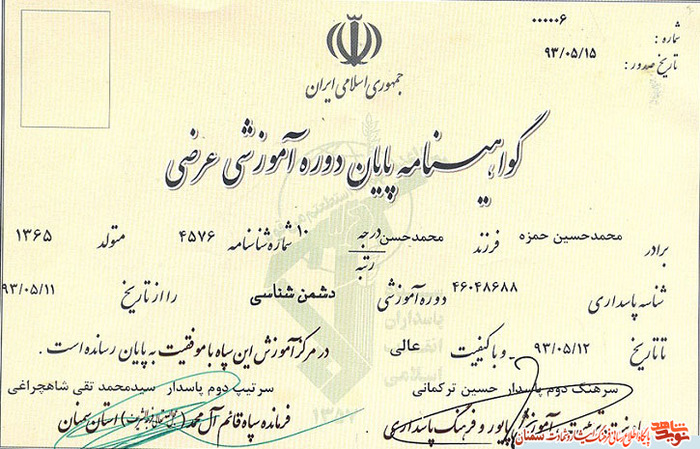 شماره : ۰۰۰۰۰۶
تاریخ صدور : ۹۳/۰۵/۱۵
جمهوری اسلامی ایران
گواهینامه پایان دوره آموزشی عرضی
برادر محمدحسین حمزه فرزند محمدحسن درجه رتبه ۱۰ شماره شناسنامه ۴۵۷۶ متولد ۱۳۶۵
شناسه پاسداری ۴۶۰۴۸۶۸۸ دوره آموزشی دشمن شناسی را از تاریخ ۹۳/۰۵/۱۱
تا تاریخ ۹۳/۰۵/۱۲ و با کیفیت عالی در مرکز آموزش این سپاه با موفقیت به پایان رسانده است .
سرهنگ دوم پاسدار حسین ترکمانی
آموزش و فرهنگ پاسداری
سرتیپ دوم پاسدار سیدمحمد تقی شاهچراغی
فرمانده سپاه قائم آل محمد استان سمنان
پاسداران
انقلاب
اسلامی
۱۳۵۷
نوید شاهد
پایگاه اطلاع رسانی فرهنگ ایثار و شهادت سمنان